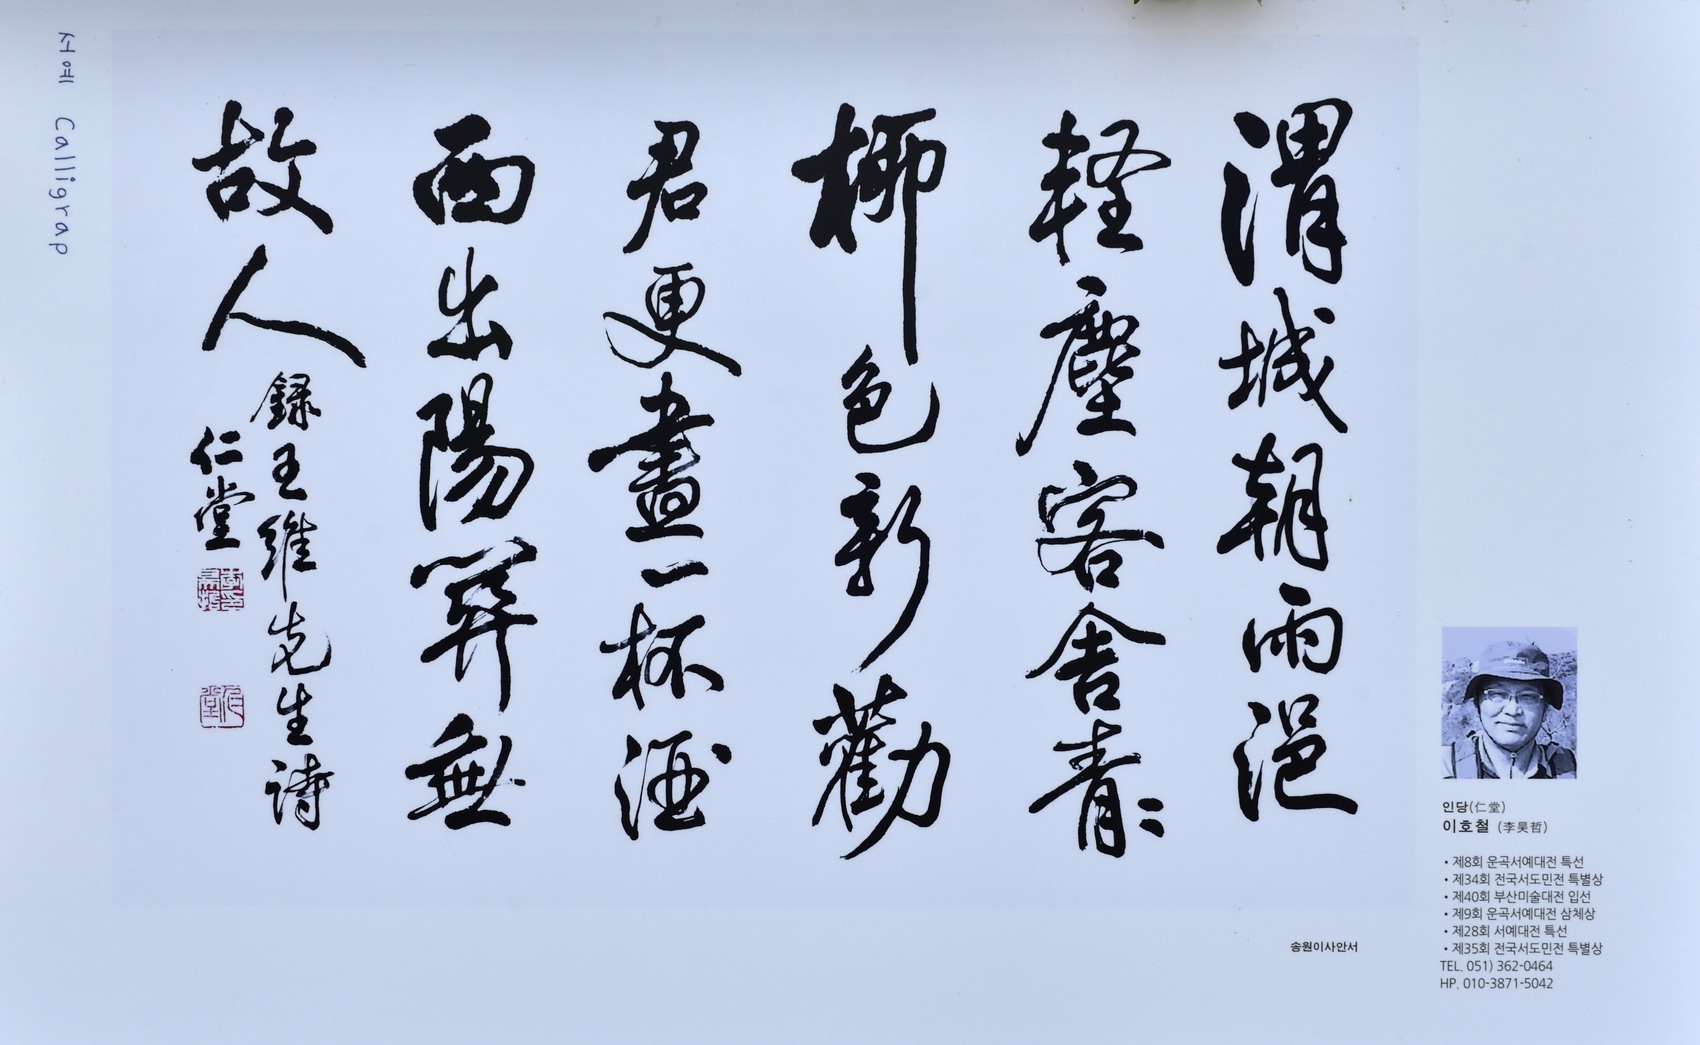 서예 Calligrap
渭城朝雨浥
軽塵客舎青〻
柳色新勸
君更盡一杯酒
西出陽關無
故人
録王維先生詩
仁堂
인당(仁堂)
이호철 (李昊哲)
• 제8회 운곡서예대전 특선
• 제34회 전국서도민전 특별상
• 제40회 부산미술대전 입선
• 제9회 운곡서예대전 삼체상
• 제28회 서예대전 특선
• 제35회 전국서도민전 특별상
TEL. 051) 362-0464
HP. 010-3871-5042
송원이사안서